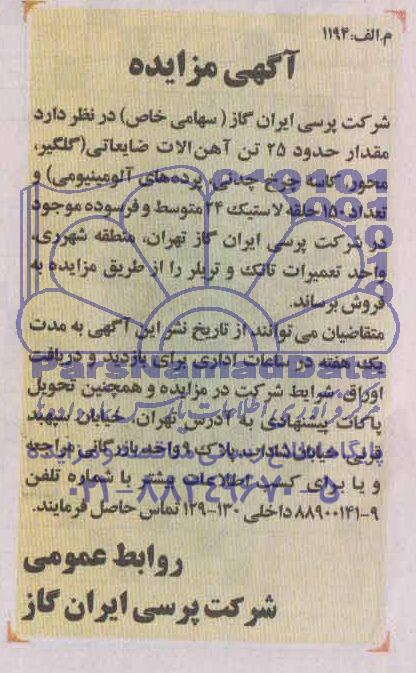 م.الف: ۱۱۹۴
آگهی مزایده
شرکت پرسی ایران گاز (سهامی خاص) در نظر دارد
مقدار حدود ۲۵ تن آهن آلات ضایعاتی (گلگیر،
محور، کاسه چرخ چدنی، پرده‌های آلومینیومی) و
تعداد ۱۵۰ حلقه لاستیک ۲۴ متوسط و فرسوده موجود
در شرکت پرسی ایران گاز تهران، منطقه شهرری،
واحد تعمیرات تانک و تریلر را از طریق مزایده به
فروش برساند.
متقاضیان می توانند از تاریخ نشر این آگهی به مدت
یک هفته در ساعات اداری برای بازدید و دریافت
اوراق شرایط شرکت در مزایده و همچنین تحویل
پاکات پیشنهادی به آدرس تهران، خیابان سپهبد
قرنی، خیابان شاداب، پلاک ۹ واحد بازرگانی مراجعه
و یا برای کسب اطلاعات بیشتر با شماره تلفن
۹-۸۸۹۰۰۱۴۱ داخلی ۱۳۰-۱۲۹ تماس حاصل فرمایند.
روابط عمومی
شرکت پرسی ایران گاز
ParsNamadData
۰۲۱-۸۸۳۴۹۶۷۰-۵